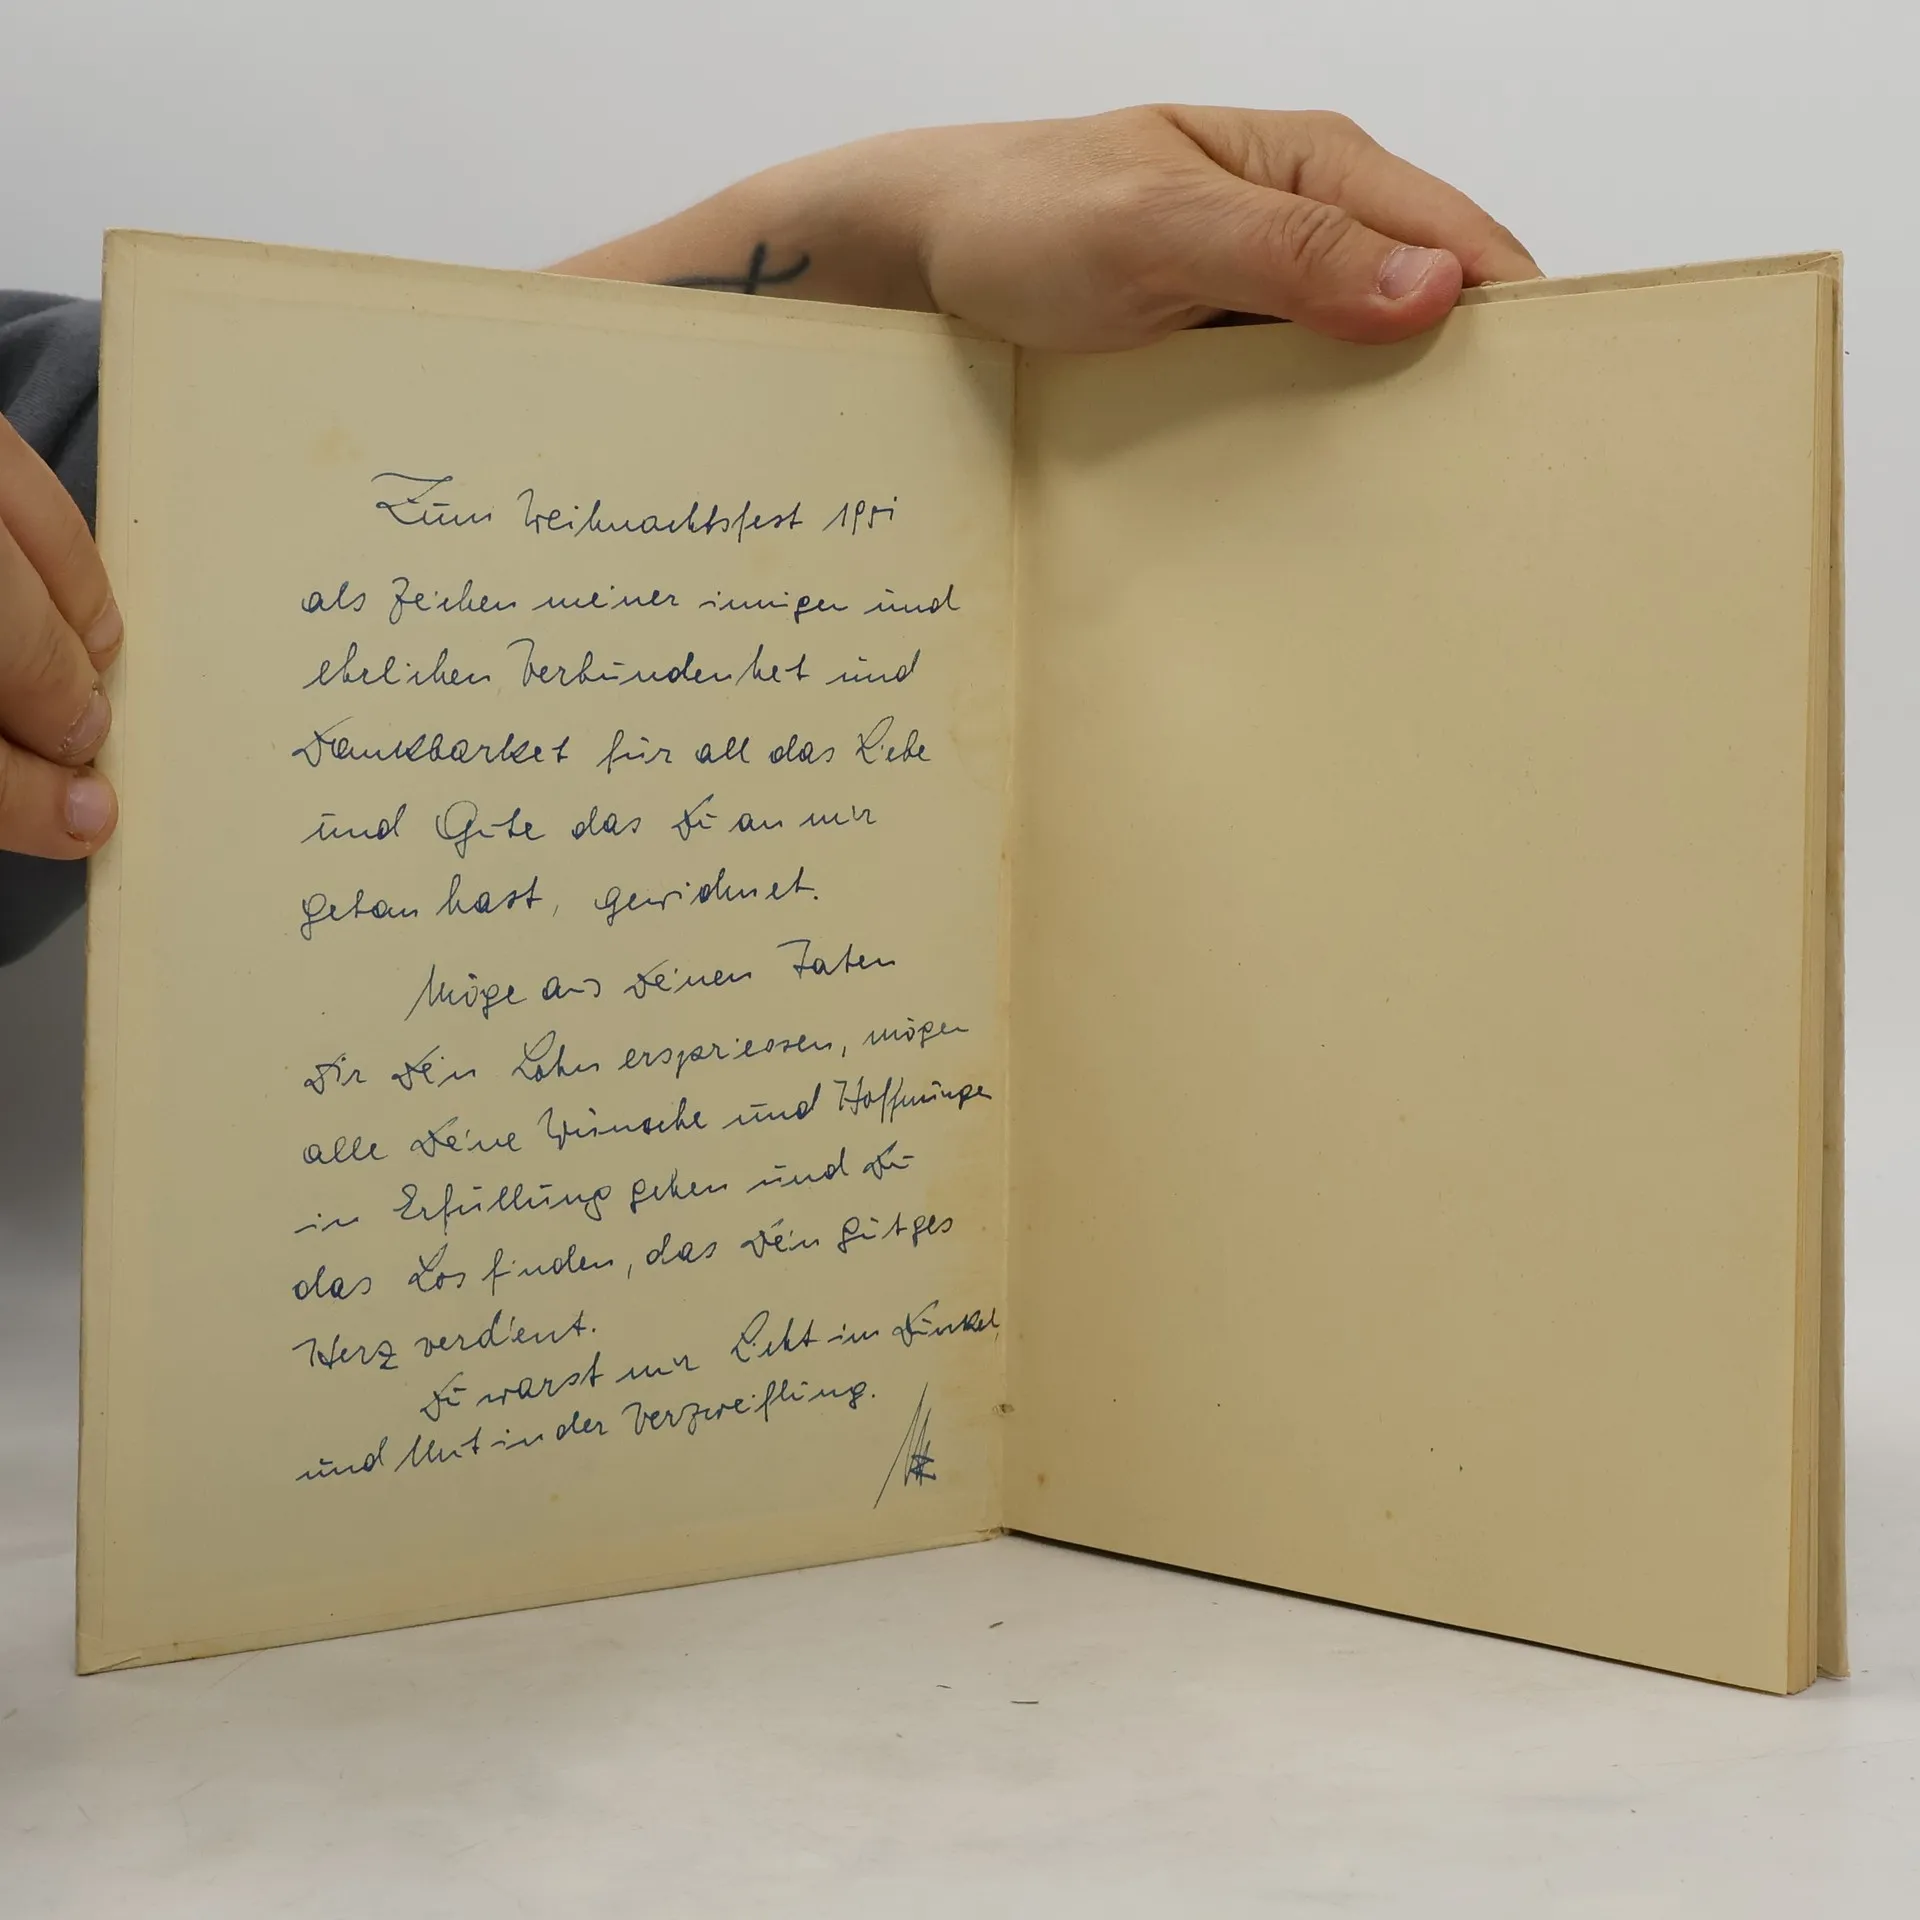 Zum Weihnachtsfest 1951
als Zeichen meiner innigen und
ehrlichen Verbundenheit und
Dankbarkeit für all das Liebe
und Gute das Du an mir
getan hast, gewidmet.
Möge aus Deinen Taten
Dir Dein Lohn erspriessen, mögen
alle Deine Wünsche und Hoffnungen
in Erfüllung gehen und Du
das Los finden, das Dein gütges
Herz verdient.
Du warst mir Licht im Dunkel,
und Mut in der Verzweiflung.